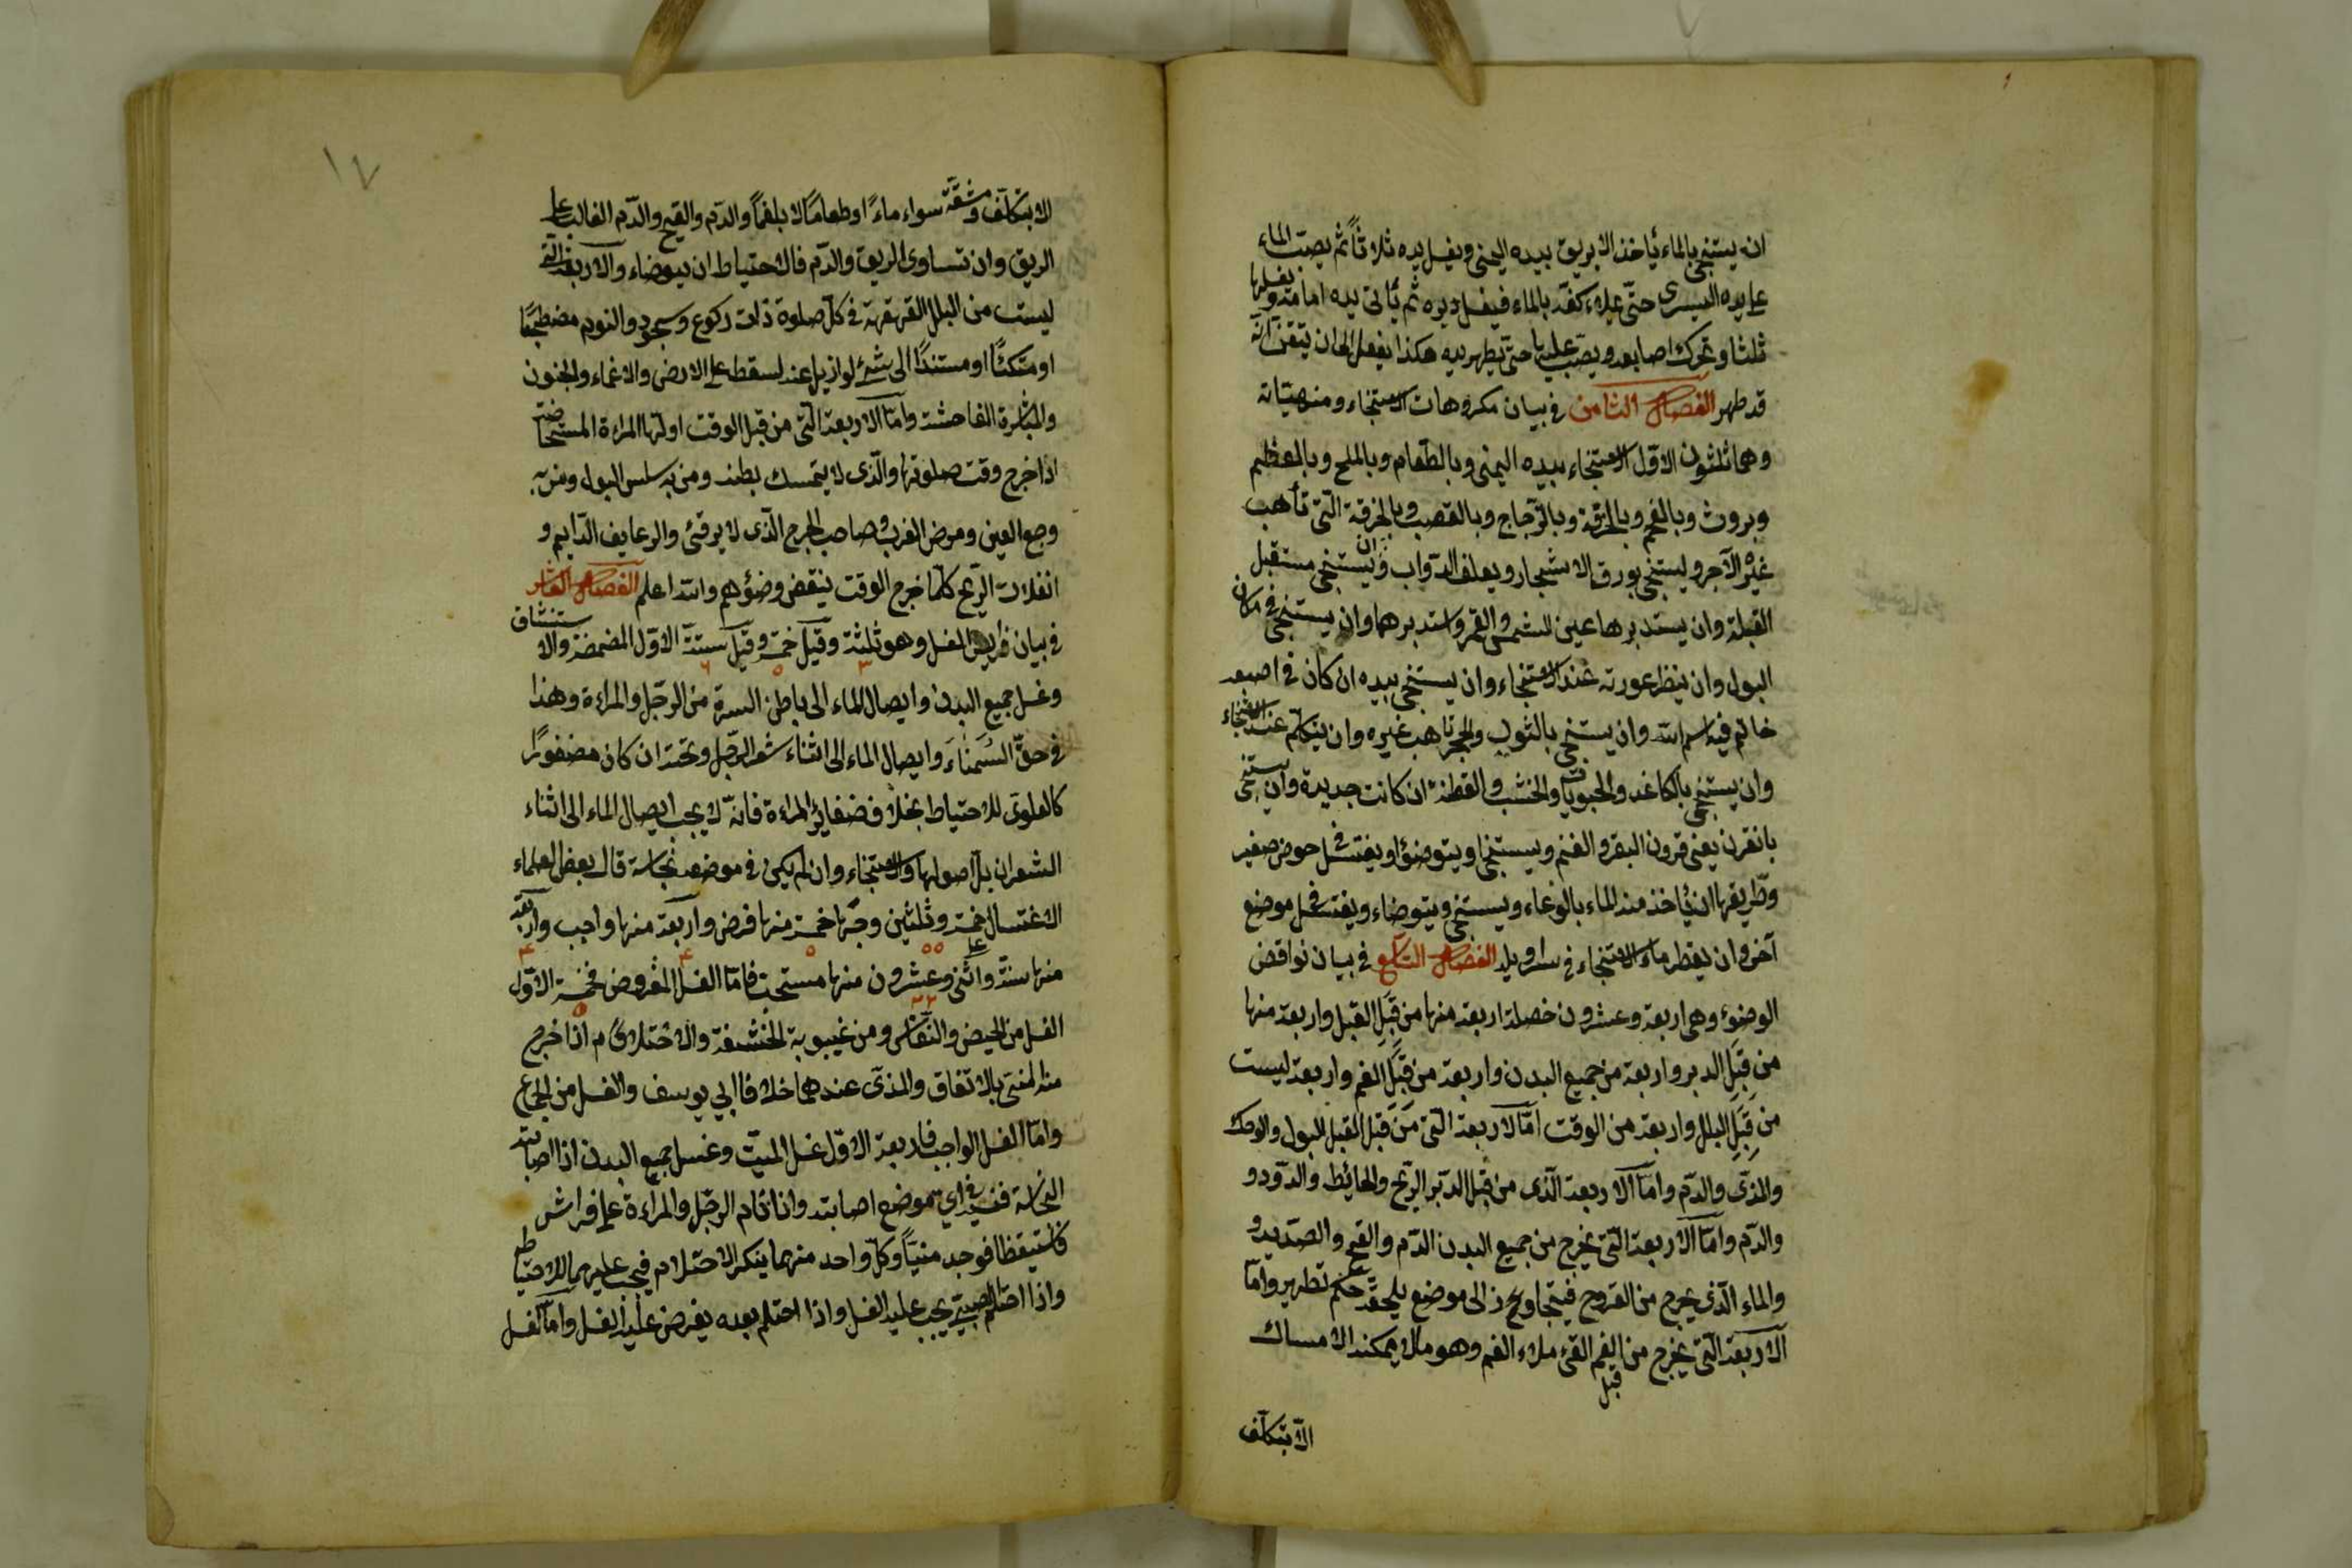 ان يستنجى بالماء يأخذ الابريق بيده اليمنى ويغسل يده ثلاثاً ثم يصبّ الماء
على يده اليسرى حتّى يملاء كفّه بالماء فيغسل دبره ثم يأتى يده امامه ويغسلها
ثلثا وتحرك اصابعه ويصبّ عليها حتّى يطهر يده هكذا يفعل الى ان يتقن انّه
قد طهر الفصل الثامن فى بيان مكروهات الاستنجاء ومنهياته
وهما ثلثون الاوّل الاستنجاء بيده اليمنى وبالطّعام وبالملح وبالعظيم
وبروث وبالفحم وبالخرقة وبالزّجاج وبالقصب وبالخرقة الّتى تأهب
غيره الآجر وليستنجى بورق الاشجار ويعلف الدّواب وان يستنجى مستقبل
القبلة وان يستدبرها عين الشمس والقمر واستدبرهما وان يستنجى فى مكان
البول وان ينظر عورته عند الاستنجاء وان يستنجى بيده ان كان فى اصبعه
خاتم فيه اسم الله وان يستنجى بالثوب والحجر تاهب غيره وان يتكلم عند الاستنجاء
وان يستنجى بالكاغد والحبوبات والخشب والقطنة ان كانت جديدة وان يستنجى
بانقرن يعنى قرون البقر والغنم ويستنجا ويتوضؤا ويغتسل فى حوض صغير
وطريقها ان يأخذ منه الماء بالوعاء ويستنجى ويتوضاء ويغتسل فى موضع
آخر وان يقطر ماء الاستنجاء فى سراويله الفصل التاسع فى بيان نواقض
الوضوء وهى اربعة وعشرون خصلة اربعة منها من قِبَلِ القبل واربعة منها
من قِبَلِ الدبر واربعة من جميع البدن واربعة من قِبَلِ الفم واربعة ليست
من قِبَلِ البلل واربعة من الوقت امّا الاربعة الّتى من قبل القبل البول والودك
والمذّى والدّم وامّا الاربعة الّذى من قبل الدّبر الرّيح والغائط والدّود و
والدّم وامّا الاربعة الّتى يخرج من جميع البدن الدّم والقيح والصّديد و
والماء الّذى يخرج من القروح فيتجاوز الى موضع يلحقه حكم تطهير وامّا
الاربعة الّتى يخرج من قبل الفم القئ ملاء الفم وهو مالا يمكنه الامساك
الّا بتكلّف
١٧
الا بتكلّف ومشقّة سواء ماءً او طعامًا لا بلغمًا والدّم والقيح والدّم الغالب على
الريق وان تساوى الريق والدّم فالاحتياط ان يتوضاء والاربعة الّتى
ليست من البلل القهقهة فى كلّ صلوة ذات ركوع وسجود والنوم مضطجعًا
او متكئًا او مستندًا الى شئ لو ازيل عنه لسقط على الارض والاغماء والجنون
والمباشرة الفاحشة وامّا الاربعة الّتى من قبل الوقت اولها المراءة المستحاضة
اذا خرج وقت صلوتها والّذى لا يتمسك بطنه ومن به سلس البول ومن به
وجع العين ومرض الغرب وصاحب الجرح الّذى لا يرقئ والرعايف الدّايم و
انفلات الرّيح كلّما خرج الوقت ينقض وضؤهم والله اعلم الفصل العاشر
فى بيان فرايض الغسل وهو ثلثة وقيل خمسة وقيل ستّة الاوّل المضمضة والاستنشاق
٣ ٥ ٦
وغسل جميع البدن وايصال الماء الى باطن السرة من الرّجل والمراءة وهذا
فى حقّ السَّمَناء وايصال الماء الى اثناء شعر الرّجل وتحته ان كان مضفورًا
كالعلوى للاحتياط بخلاف ضفاير المراءة فانّه لا يجب ايصال الماء الى اثناء
الشعر ان بلّ اصولها والاستنجاء وان لم يكن فى موضعه نجاسة قال بعض العلماء
الاغتسال خمسة وثلثين وجها خمسة منها فرض واربعة منها واجب واربعة
٥٥ ٥ ۴ ۴
منها سنّة واثنى وعشرون منها مستحبّ فامّا الغسل المفروض فخمسة الاوّل
٢٢ ٥
الغسل من الحيض والنفاس ومن غيبوبة الخشفة والاختلام اذا خرج
منه المنى بالاتفاق والمذى عندهما خلافا ابي يوسف والغسل من الجماع
وامّا الغسل الواجب فاربعة الاوّل غسل الميّت وغسل جميع البدن اذا اصابته
النجاسة فنسى فى اي موضع اصابته واذا نام الرّجل والمراءة على فراش
فاستيقظا فوجد منيّاً وكلّ واحد منهما ينكر الاحتلام فيجب عليهما للاحتياط
واذا احتلم الصبى يجب عليه الغسل واذا احتلم بعده يفرض عليه الغسل وامّا الغسل